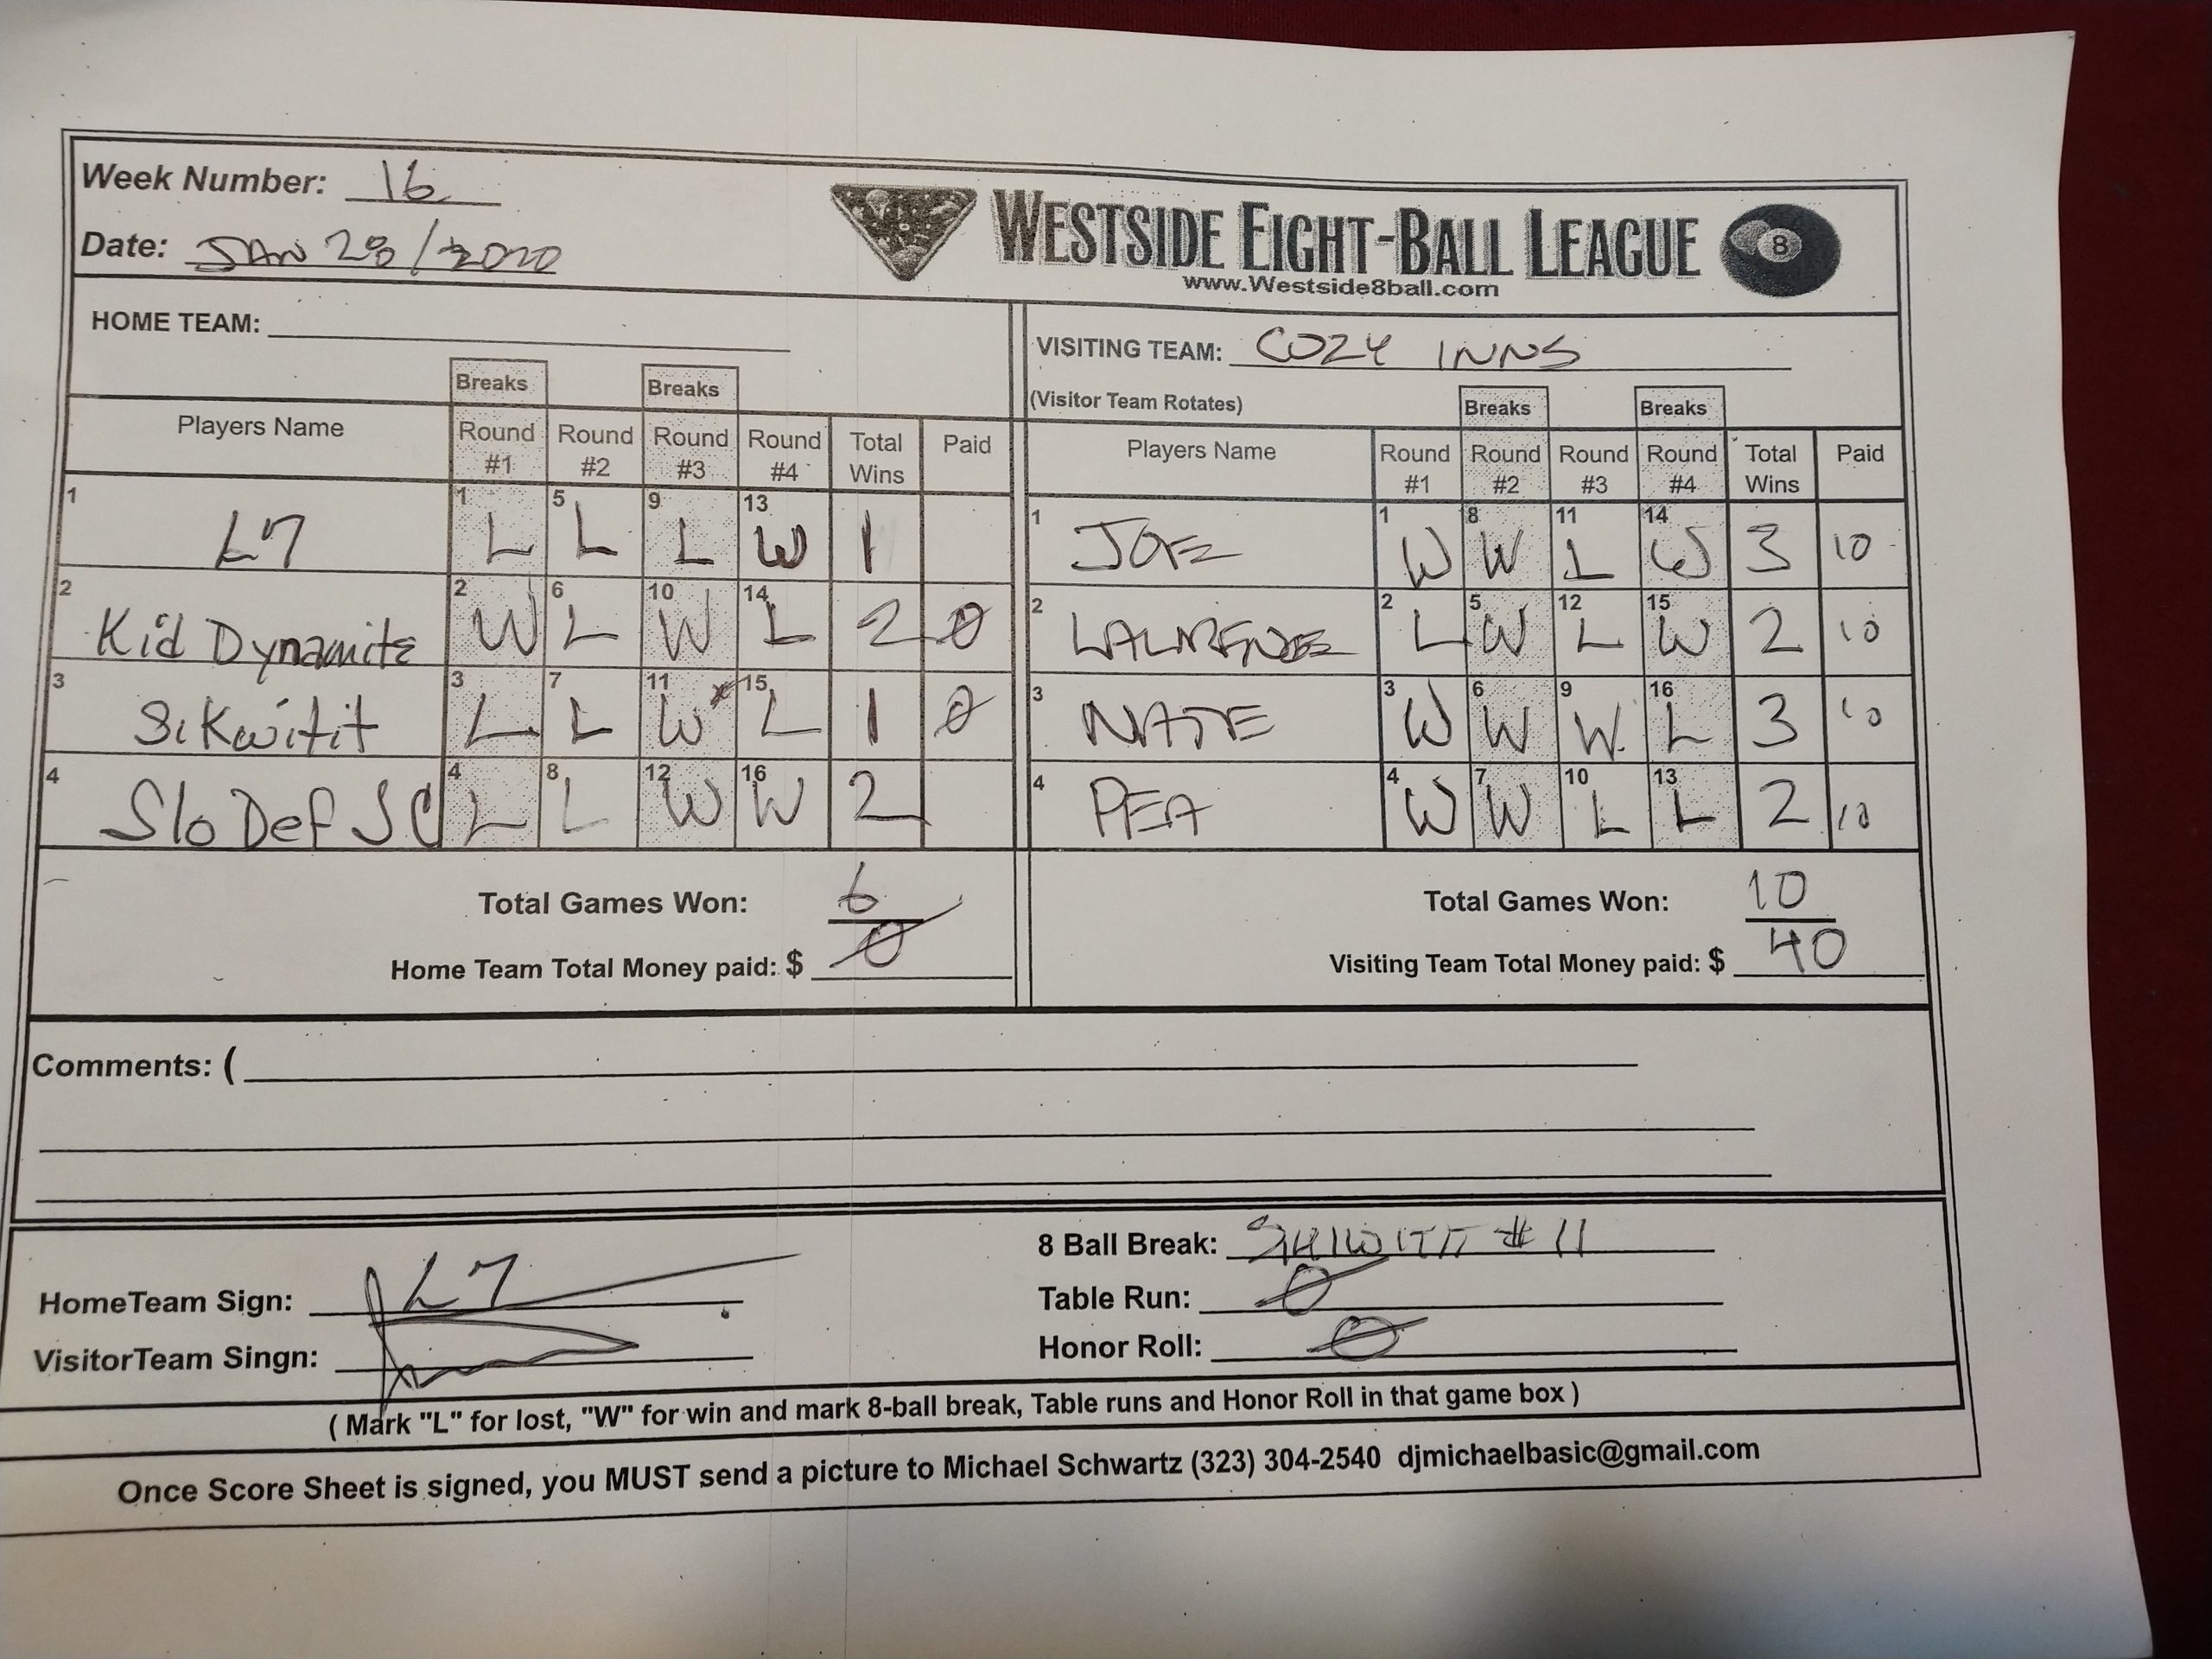 Week Number: 16
Date: JAN 28/2020
WESTSIDE EIGHT-BALL LEAGUE 8
www.Westside8ball.com
HOME TEAM:
VISITING TEAM: COZY INNS
(Visitor Team Rotates)
Breaks Breaks Breaks Breaks
Players Name Round #1 Round #2 Round #3 Round #4 Total Wins Paid
Players Name Round #1 Round #2 Round #3 Round #4 Total Wins Paid
1 L7 1 L 5 L 9 L 13 W 1
1 JOE 1 W 8 W 11 L 14 W 3 10
2 Kid Dynamite 2 W 6 L 10 W 14 L 2 0
2 2 L 5 W 12 L 15 W 2 10
3 SiKwitit 3 L 7 L 11 W* 15 L 1 0
3 NATE 3 W 6 W 9 W 16 L 3 10
4 Slo Def JC 4 L 8 L 12 W 16 W 2
4 PEA 4 W 7 W 10 L 13 L 2 10
Total Games Won: 6
Total Games Won: 10
Home Team Total Money paid: $ 0
Visiting Team Total Money paid: $ 40
Comments: (
HomeTeam Sign: L7
VisitorTeam Singn:
8 Ball Break: # 11
Table Run: 0
Honor Roll: 0
( Mark "L" for lost, "W" for win and mark 8-ball break, Table runs and Honor Roll in that game box )
Once Score Sheet is signed, you MUST send a picture to Michael Schwartz (323) 304-2540 djmichaelbasic@gmail.com